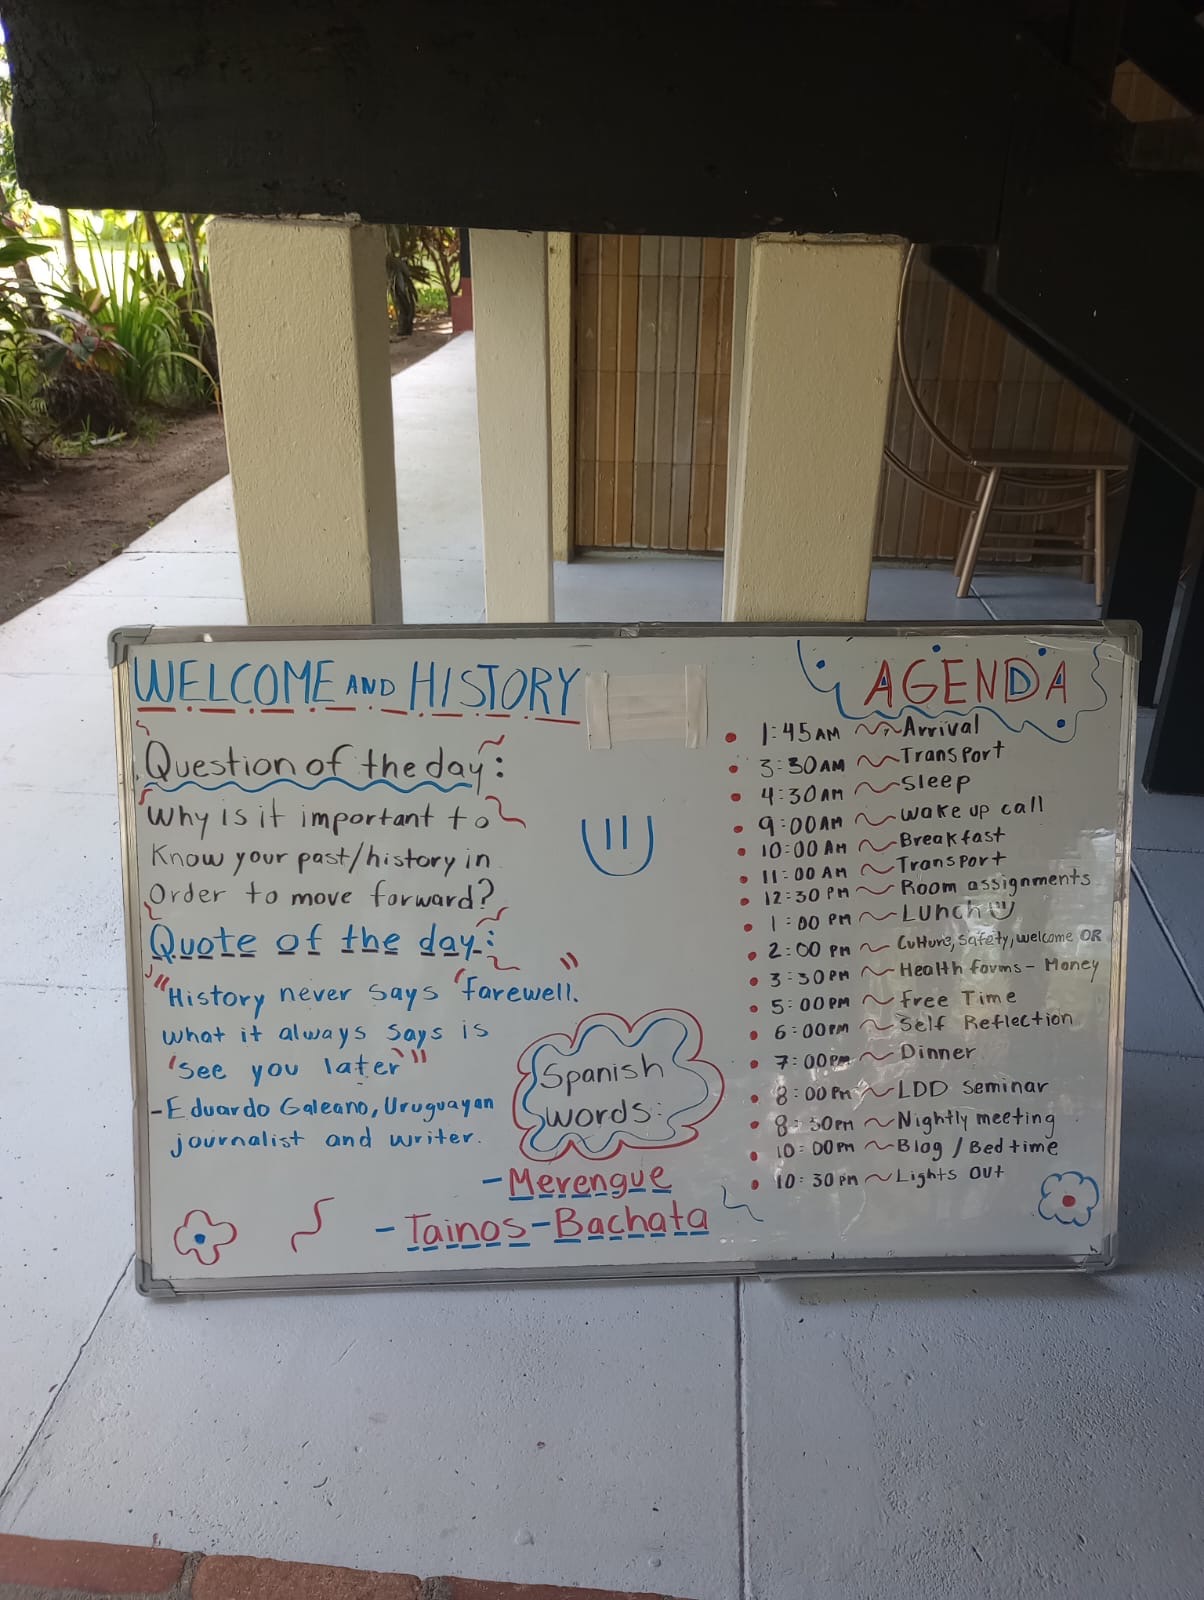 WELCOME AND HISTORY
Question of the day:
Why is it important to
Know your past/history in
Order to move forward?
Quote of the day:
"History never says 'farewell.
what it always says is
'see you later'"
-Eduardo Galeano, Uruguayan
journalist and writer.
Spanish
words:
-Merengue
-Tainos-Bachata
AGENDA
1:45AM ~ Arrival
3:30AM ~ Transport
4:30AM ~ Sleep
9:00AM ~ wake up call
10:00AM ~ Breakfast
11:00AM ~ Transport
12:30PM ~ Room assignments
1:00PM ~ Lunch
2:00PM ~ Culture, Safety, welcome OR
3:30PM ~ Health forms - Money
5:00PM ~ Free Time
6:00PM ~ Self Reflection
7:00PM ~ Dinner
8:00PM ~ LDD Seminar
8:30PM ~ Nightly meeting
10:00PM ~ Blog / Bedtime
10:30PM ~ Lights Out